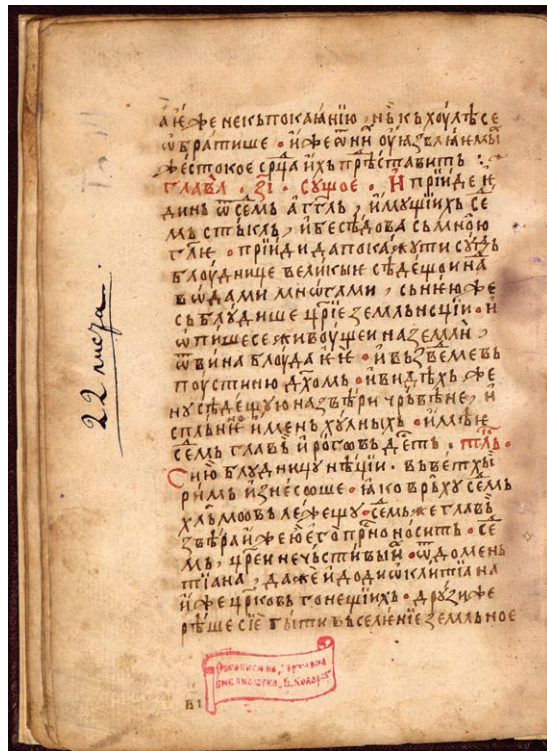 а҆ и҆же не къ покаꙗ́нїю , нь къ хоу́лѣ се
ѡ҆братише • и҆же ѿ нй оу҆ꙗзвлꙗемы
же́стокое ср҃ца и҆хь прѣ́ставить :
Глава • з҃і • су́щое • И҆ прїи҆де ѥ҆
динь ѿ се́мь а҆гг҃ль , и҆мущїихь се
мь стькль , и҆ бесѣ́дова сь мною
гл҃ѥ • прїи҆ди да покажу ти судь
блоу́днице великыѥ сѣ́дещои на
во́дами мнѡ́гами , сь нѥю же
сьблудише цр҃їе земльнсцїи • и҆
ѡ҆пише се живоущеи на земли ,
ѿ вина блоуда ѥѥ • и҆ възве́ме вь
поустиню дх҃омь • и҆ видѣхь же
ну сѣдещую на звѣри чрьвѣне , и҆
спльнѥно имень хулныхь • и҆мѣѥ
семь главь и҆ рогѡвь де́сть • тль •
Сїю блудницу нѣцїи • вь ветхы
римь и҆знесоше • ꙗко врьху семь
хльмоовь лежещу • семь же главь
звѣра и҆же ю҆ е҆го прⷭ҇но носить • се
мь , цр҃еи нечьстивый • ѿ домень
тїана , даже и҆ до дїѡклитїана
и҆же цр҃ковь гонещїихь • друзи же
рѣше сїе быти вьселѥнїе земльное
22 листа.